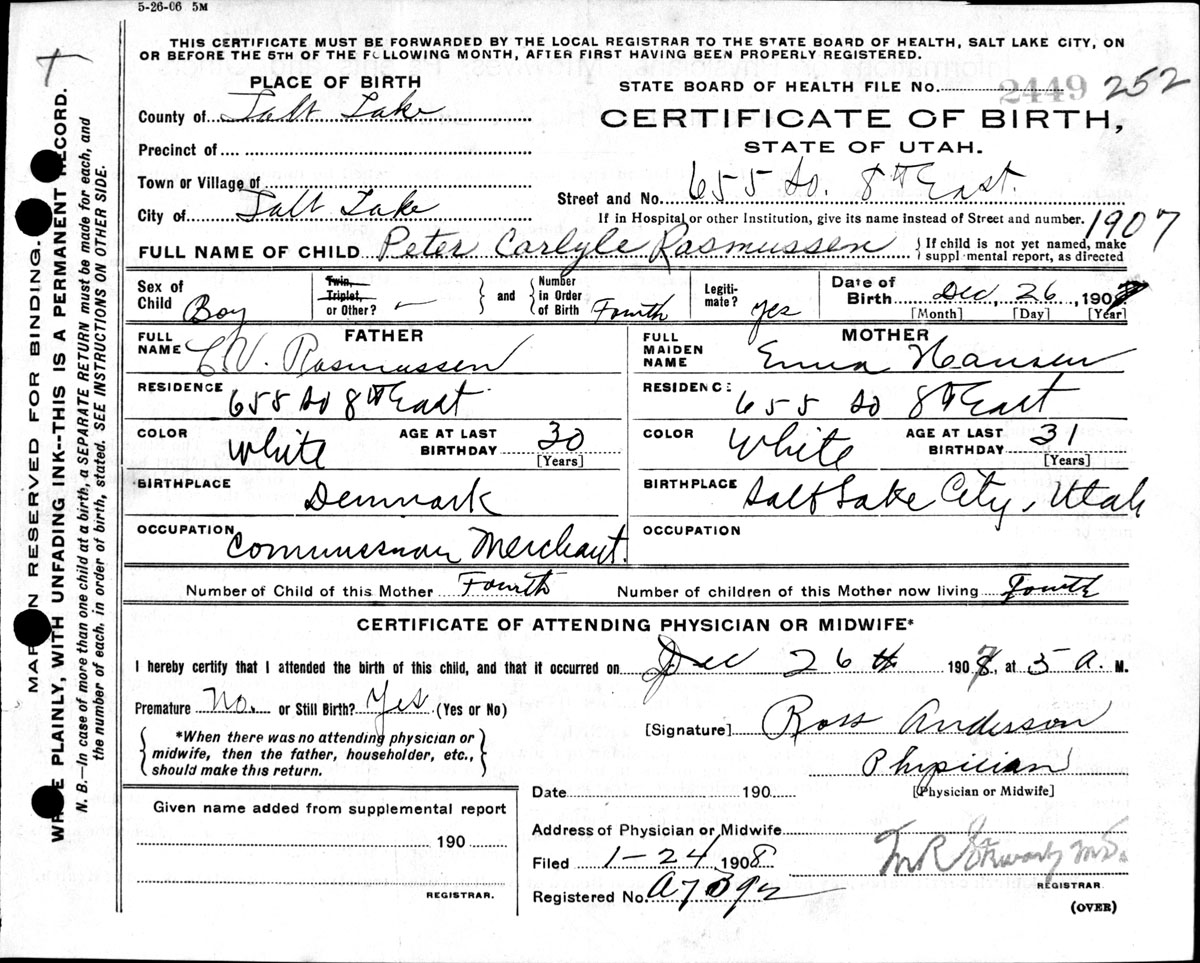 5-26-06 5M
THIS CERTIFICATE MUST BE FORWARDED BY THE LOCAL REGISTRAR TO THE STATE BOARD OF HEALTH, SALT LAKE CITY, ON
OR BEFORE THE 5TH OF THE FOLLOWING MONTH, AFTER FIRST HAVING BEEN PROPERLY REGISTERED.
PLACE OF BIRTH
STATE BOARD OF HEALTH FILE No. 2449 252
County of Salt Lake
CERTIFICATE OF BIRTH,
STATE OF UTAH.
Precinct of
Town or Village of
Street and No. 655 So. 8th East.
City of Salt Lake
If in Hospital or other Institution, give its name instead of Street and number.
1907
FULL NAME OF CHILD Peter Carlyle Rasmussen
If child is not yet named, make
supplemental report, as directed
Sex of Child Boy
Twin, Triplet, or Other? —
and
Number in Order of Birth Fourth
Legitimate? Yes
Date of Birth Dec, 26, 1907
[Month] [Day] [Year]
FATHER
FULL NAME Rasmussen
MOTHER
FULL MAIDEN NAME Emma Hansen
RESIDENCE 655 So 8th East
RESIDENCE 655 So 8th East
COLOR White
AGE AT LAST BIRTHDAY 30
[Years]
COLOR White
AGE AT LAST BIRTHDAY 31
[Years]
BIRTHPLACE Denmark
BIRTHPLACE Salt Lake City, Utah
OCCUPATION Commission Merchant.
OCCUPATION
Number of Child of this Mother Fourth
Number of children of this Mother now living Fourth
CERTIFICATE OF ATTENDING PHYSICIAN OR MIDWIFE*
I hereby certify that I attended the birth of this child, and that it occurred on Dec 26th 1907, at 5 a. M.
Premature No. or Still Birth? Yes (Yes or No)
[Signature] Ross Anderson
*When there was no attending physician or
midwife, then the father, householder, etc.,
should make this return.
Physician
[Physician or Midwife]
Date 190
Given name added from supplemental report
190
REGISTRAR.
Address of Physician or Midwife
Filed 1-24, 1908
M.D.
REGISTRAR.
Registered No. A7392
(OVER)
MARGIN RESERVED FOR BINDING.
WRITE PLAINLY, WITH UNFADING INK--THIS IS A PERMANENT RECORD.
N. B.—In case of more than one child at a birth, a SEPARATE RETURN must be made for each, and
the number of each, in order of birth, stated. SEE INSTRUCTIONS ON OTHER SIDE.